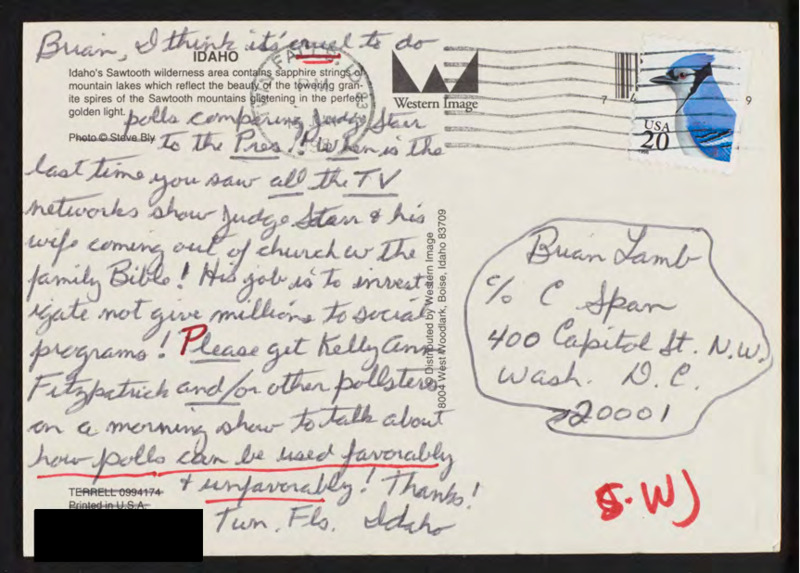 Brian, I think it's cruel to do
IDAHO
Idaho's Sawtooth wilderness area contains sapphire strings of
mountain lakes which reflect the beauty of the towering gran-
ite spires of the Sawtooth mountains glistening in the perfect
golden light.
polls comparing Judge Starr
Photo © Steve Bly
to the Pres.! When is the
last time you saw all the TV
networks show Judge Starr & his
wife coming out of church w the
family Bible! His job is to invest
igate not give millions to social
programs! Please get Kelly Ann
Fitzpatrick and/or other pollsters
on a morning show to talk about
how polls can be used favorably
& unfavorably! Thanks!
TERRELL 0994174
Printed in U.S.A.
Twn. Fls. Idaho
Western Image
© Distributed by Western Image
8004 West Woodlark, Boise, Idaho 83709
USA
20
Brian Lamb
c/o C Span
400 Capitol St. N.W.
Wash. D.C.
20001